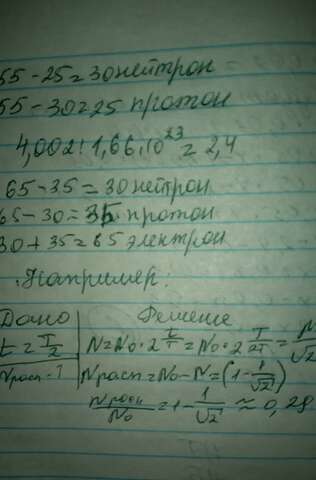 55 - 25 = 30 нейтрон
55 - 30 = 25 протон
4,002 : 1,66 · 10²³ = 2,4
65 - 35 = 30 нейтрон
65 - 30 = 35 протон
30 + 35 = 65 электрон
Например:
Дано
t = T/2
Nрасп - ?
Решение
N = N₀ · 2^(t/T) = N₀ · 2^(T/2T) = N/√2
Nрасп = N₀ - N = (1 - 1/√2)
Nрасп/N₀ = 1 - 1/√2 ≈ 0,28